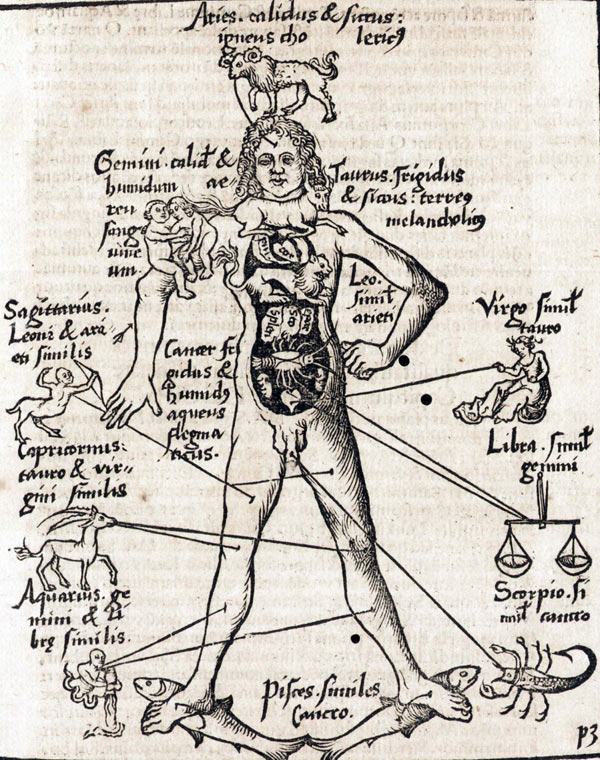 Aries. calidus & siccus:
igneus cho lericꝰ
Gemini. calid' &
humidum ae-
reu
sangui
uine
um.
Taurus. frigidus
& sicus: terreꝰ
melancholicꝰ
Leo.
simil'
arieti
Sagittarius.
Leoni & ari
eti similis
Cancer fri
gidus &
humidꝰ
aqueus
flegma
ticus.
Virgo simil'
tauro
Capricornus:
tauro & vir-
gini similis
Libra. simil'
gemini
Aquarius. ge
mini & li
brę similis.
Scorpio. si
mil' cancro
Pisces. similes
Cancro.
p3